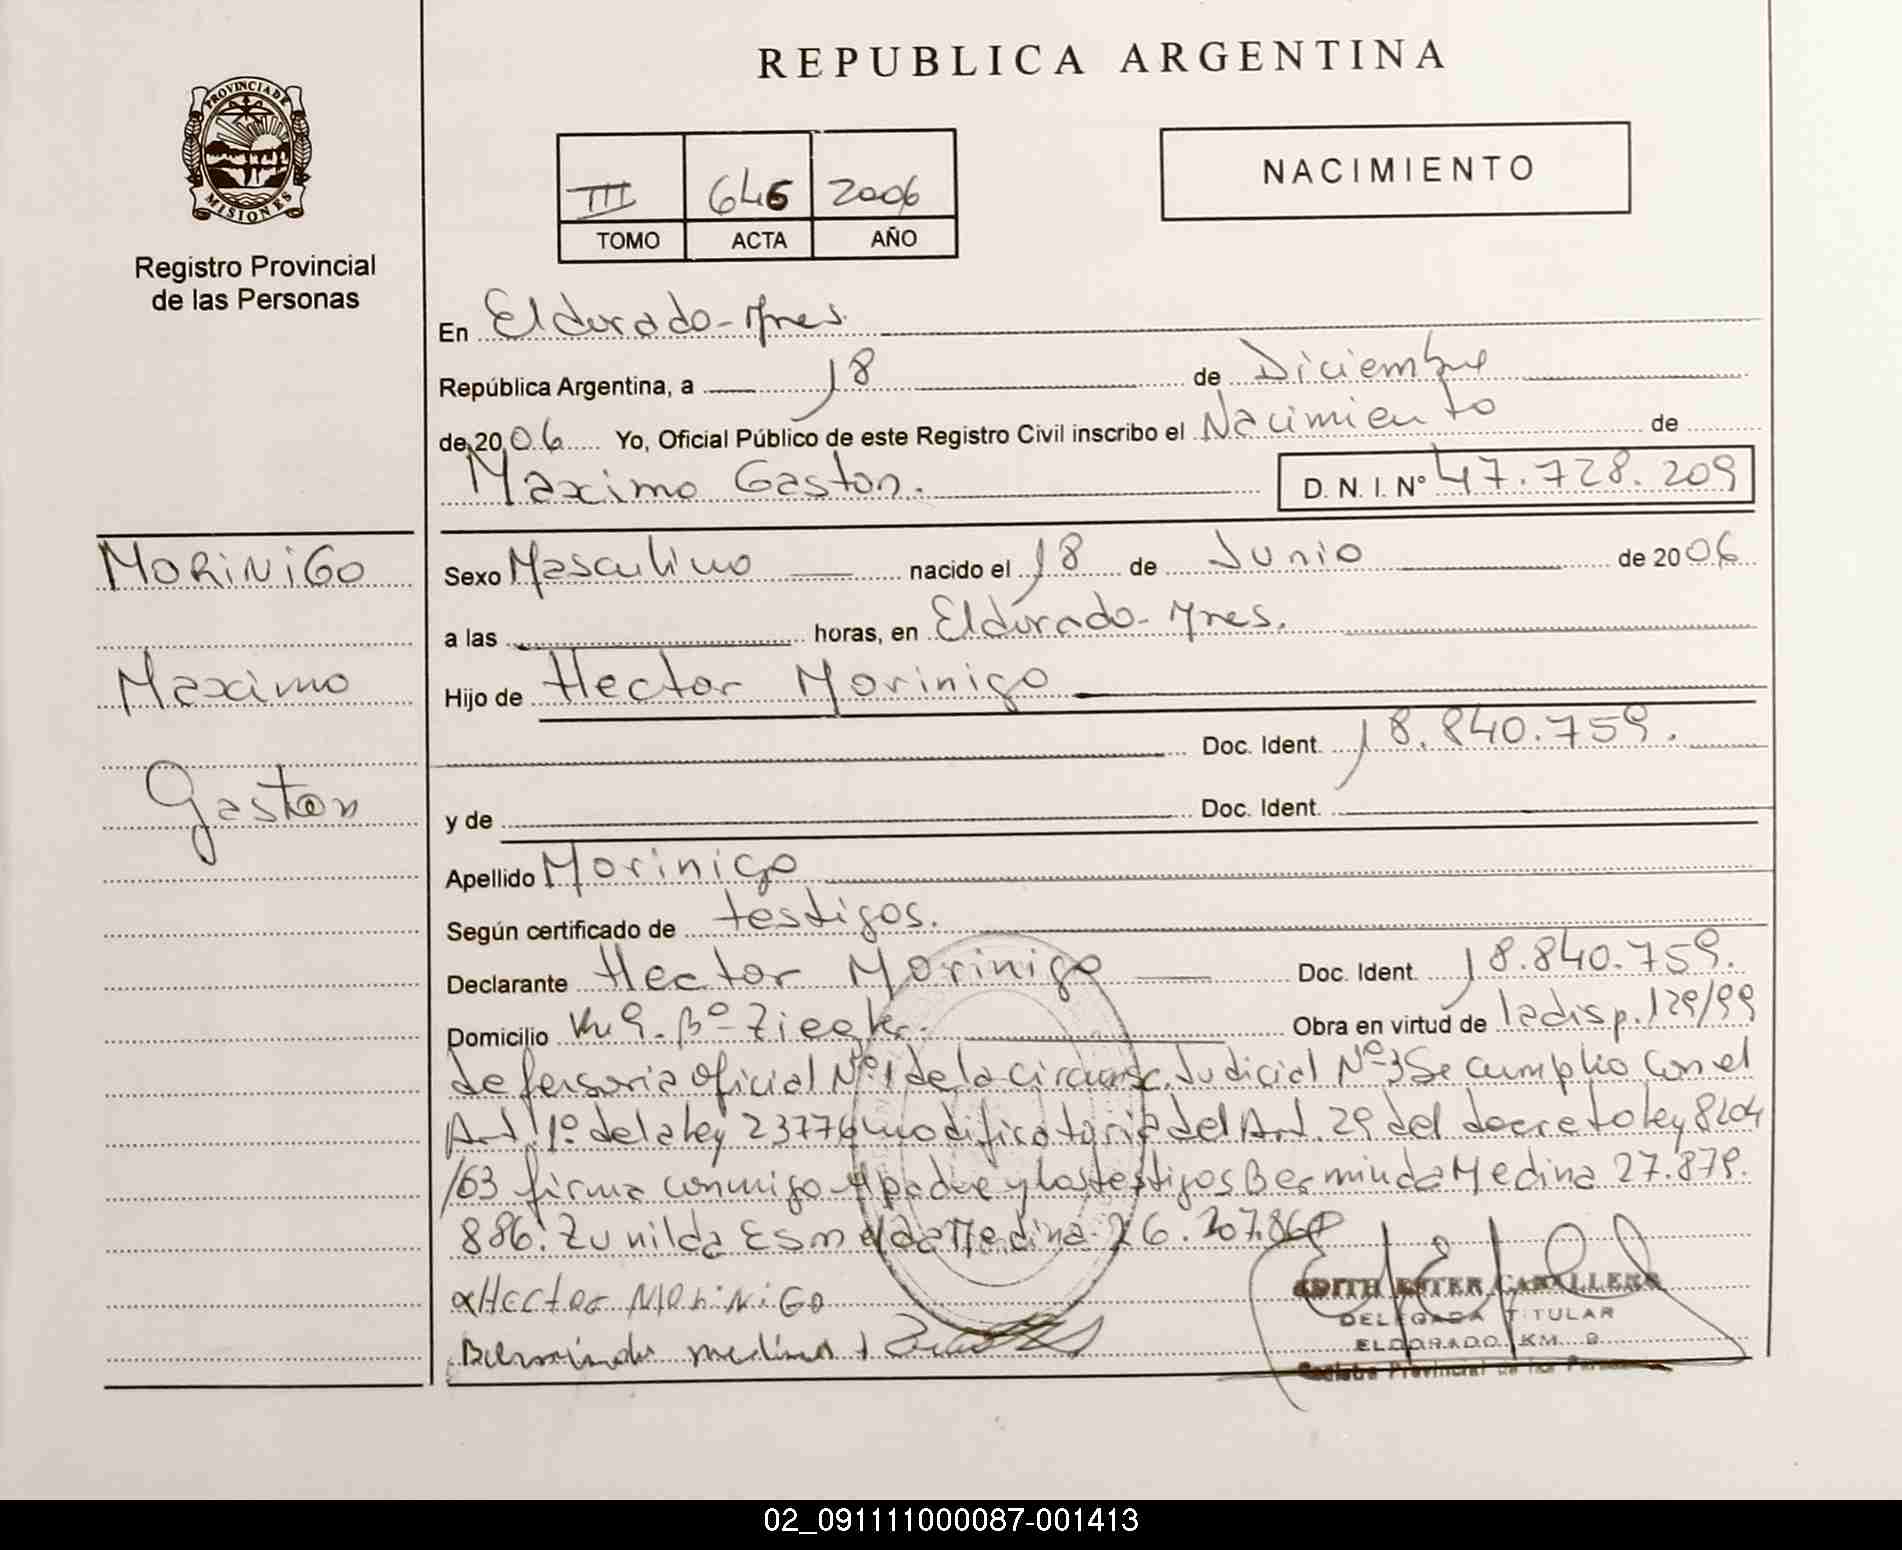 REPUBLICA ARGENTINA
PROVINCIA DE
MISIONES
Registro Provincial
de las Personas
III 646 2006
TOMO ACTA AÑO
NACIMIENTO
En Eldorado-Mnes.
República Argentina, a 18 de Diciembre
de 2006 Yo, Oficial Público de este Registro Civil inscribo el Nacimiento de
Maximo Gaston. D. N. I. Nº 47.728.209
MORINIGO
Maximo
Gaston
Sexo Masculino nacido el 18 de Junio de 2006
a las horas, en Eldorado-Mnes.
Hijo de Hector Morinigo
Doc. Ident. 18.840.759.
y de Doc. Ident.
Apellido Morinigo
Según certificado de testigos.
Declarante Hector Morinigo Doc. Ident. 18.840.759.
Domicilio Km 9. Bº Ziegler. Obra en virtud de la disp. 129/99
defensoria Oficial Nº1 de la circunsc. Judicial Nº3 Se cumplio con el
Art. 1º de la ley 23776 modificatoria del Art. 29 del decreto ley 8204
/63 firma conmigo el padre y los testigos Berminda Medina 27.879.
886. Zunilda Esmelda Medina 26.207.860
Hector MORiNiGO
Berminda medina
EDITH ESTER CABALLERO
DELEGADA TITULAR
ELDORADO KM. 9
Registro Provincial de las Personas
02_091111000087-001413